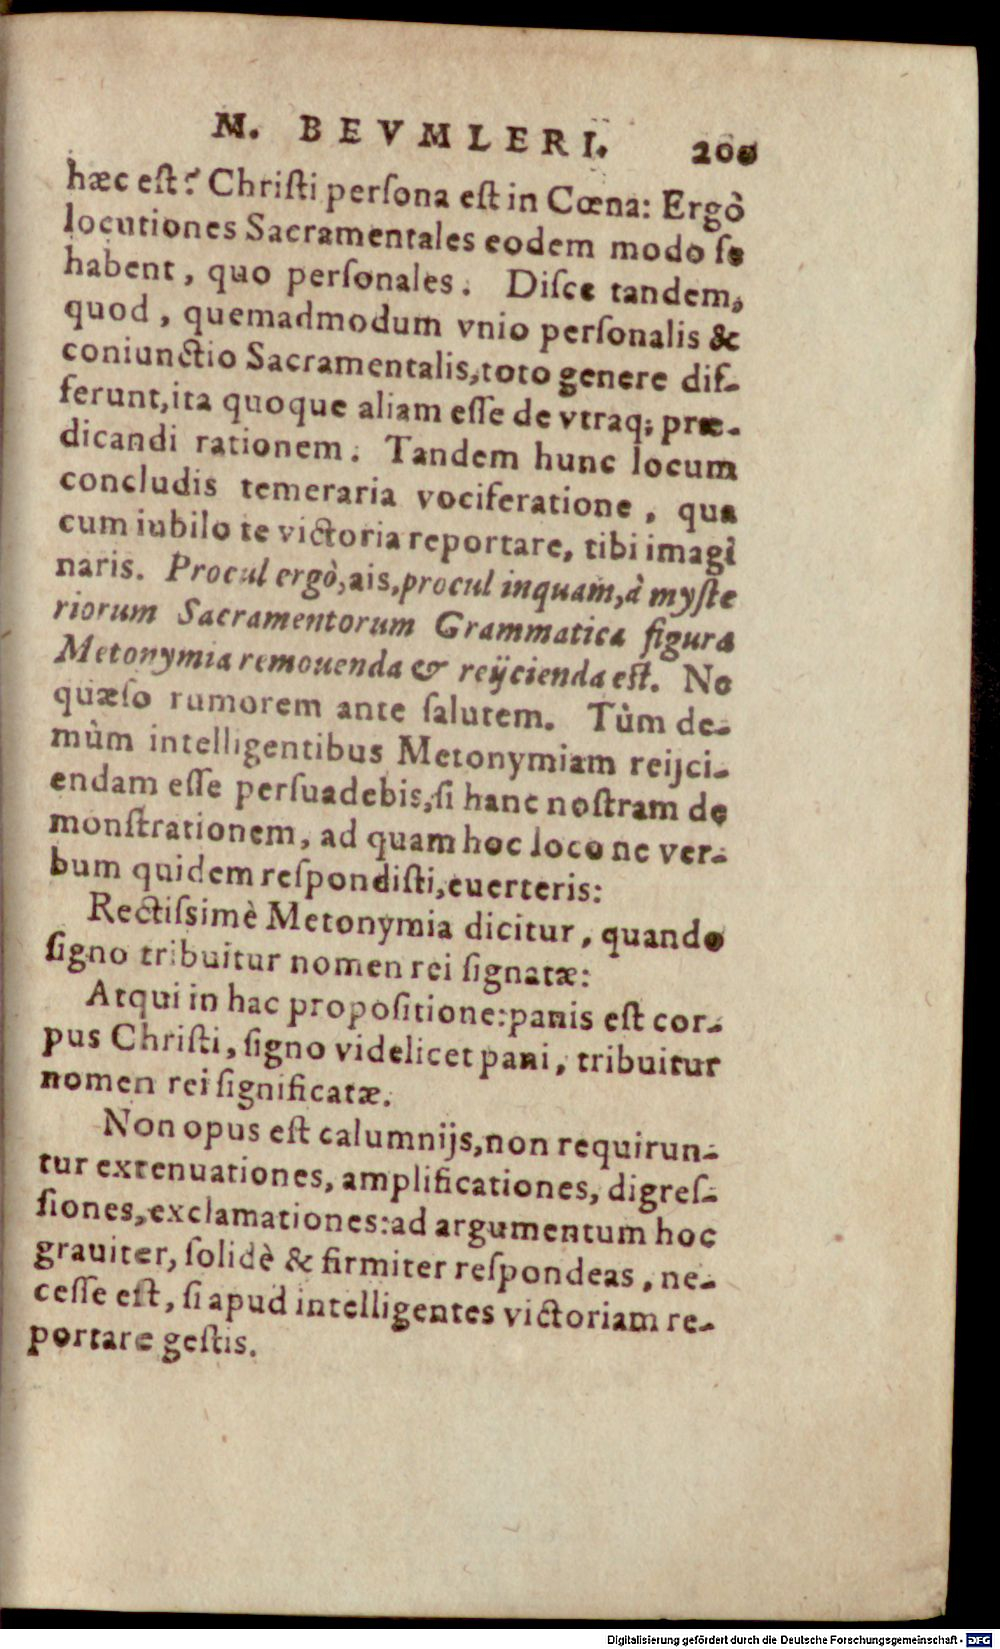 M. BEVMLERI. 200
hæc eſt? Chriſti perſona eſt in Cœna: Ergò
locutiones Sacramentales eodem modo ſe
habent, quo perſonales. Diſce tandem,
quod, quemadmodum vnio perſonalis &
coniunctio Sacramentalis, toto genere dif-
ferunt, ita quoque aliam eſſe de vtraq; præ-
dicandi rationem. Tandem hunc locum
concludis temeraria vociferatione, qua
cum iubilo te victoria reportare, tibi imagi
naris. Procul ergò, ais, procul inquam, à myſte
riorum Sacramentorum Grammatica figura
Metonymia remouenda & reijcienda eſt. Ne
quæſo rumorem ante ſalutem. Tùm de-
mùm intelligentibus Metonymiam reijci-
endam eſſe perſuadebis, ſi hanc noſtram de
monſtrationem, ad quam hoc loco ne ver-
bum quidem reſpondiſti, euerteris:
Rectiſsimè Metonymia dicitur, quando
ſigno tribuitur nomen rei ſignatæ:
Atqui in hac propoſitione: panis eſt cor-
pus Chriſti, ſigno videlicet pani, tribuitur
nomen rei ſignificatæ.
Non opus eſt calumnijs, non requirun-
tur extenuationes, amplificationes, digreſ-
ſiones, exclamationes: ad argumentum hoc
grauiter, ſolidè & firmiter reſpondeas, ne-
ceſſe eſt, ſi apud intelligentes victoriam re-
portare geſtis.
Digitalisierung gefördert durch die Deutsche Forschungsgemeinschaft - DFG